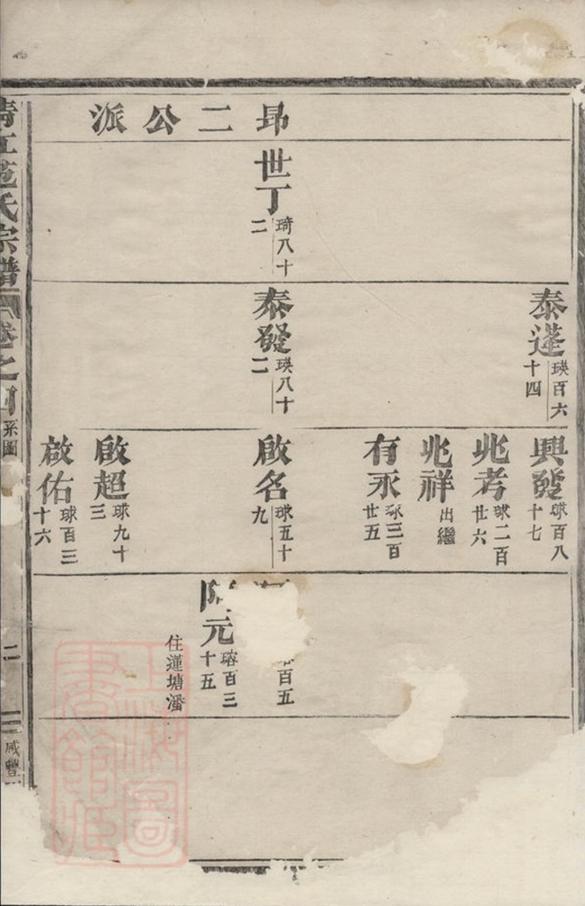 昻二公派
世丁
琦八十二
泰蓬
瑛百六十四
泰發
瑛八十二
興發
球百八十七
兆考
球二百廿六
兆祥
出繼
有永
球三百廿五
啟名
球五十九
啟超
球九十三
啟佑
球百三十六
百五
元
瑢百三十五
住蓮塘潘
清江范氏宗譜
卷之四
系圖
二
咸豐